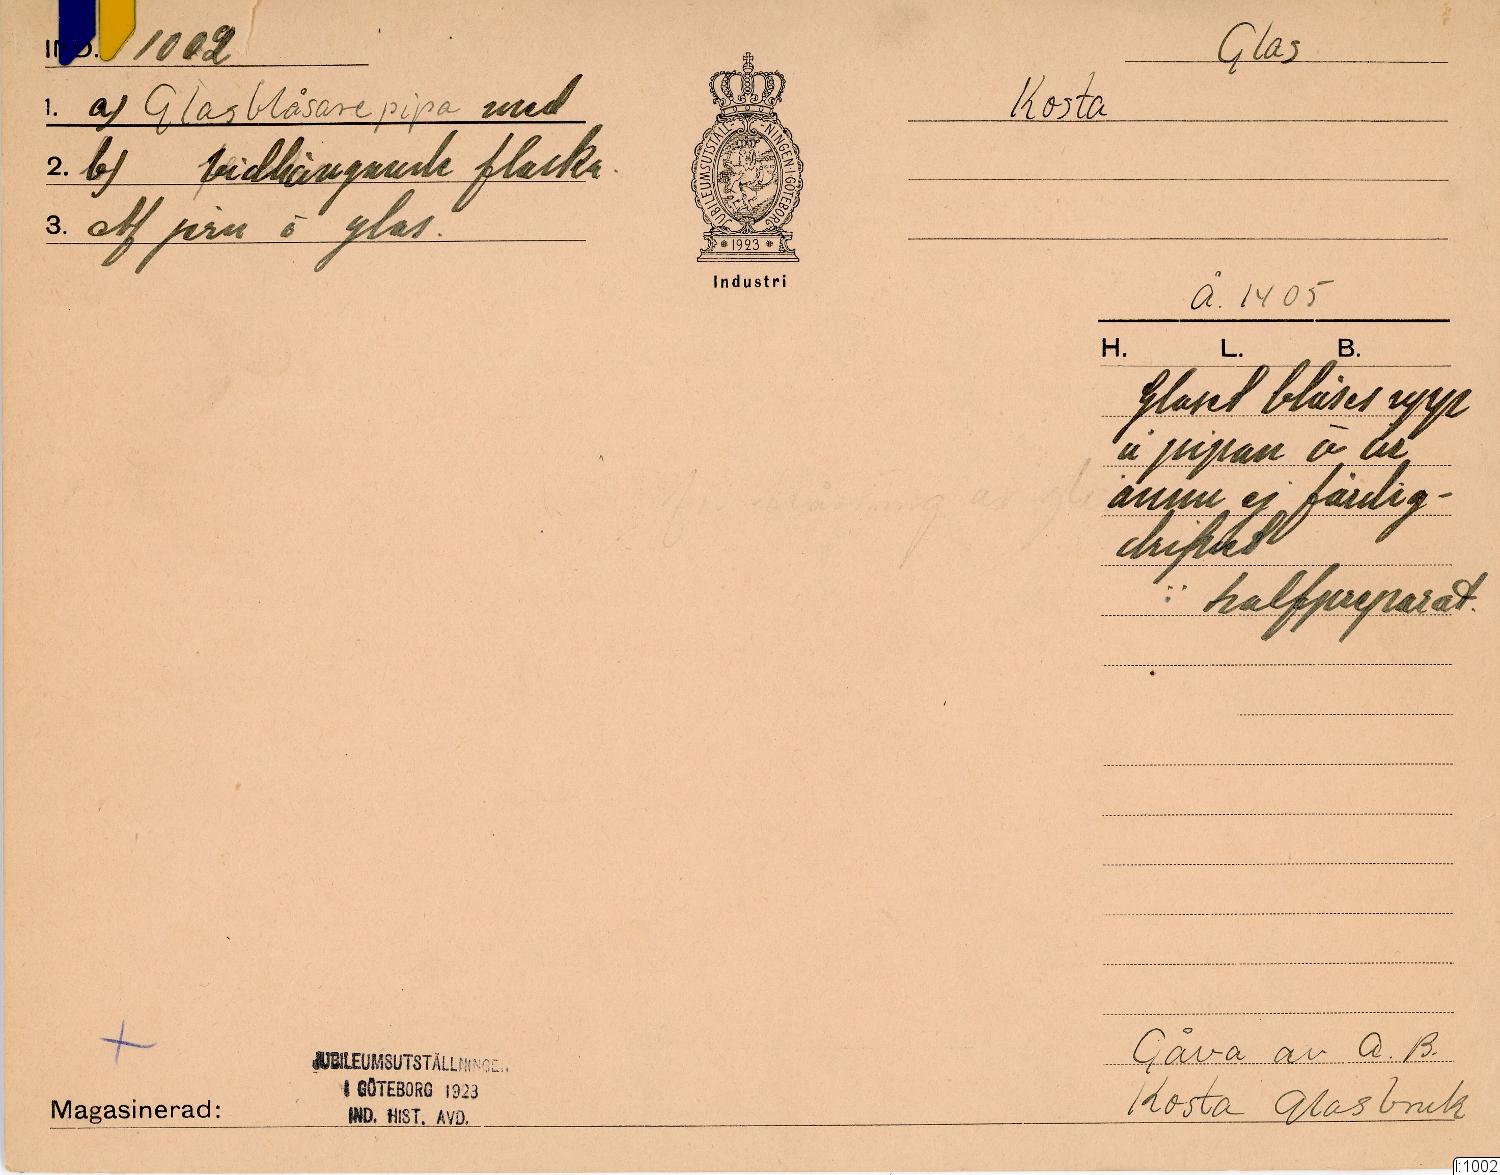 IND. 1002
1. a) Glasblåsarepipa med
2. b) vidhängande flaska.
3. Af järn o glas.
JUBILEUMSUTSTÄLLNINGEN·I·GÖTEBORG
1923
Industri
Glas
Kosta
Å. 1405
H. L. B.
Glaset blåses upp
å pipan o är
ännu ej färdig-
drifvet
∵ halfpreparat.
Gåva av A. B.
Kosta Glasbruk
JUBILEUMSUTSTÄLLNINGEN
I GÖTEBORG 1923
IND. HIST. AVD.
Magasinerad:
I:1002